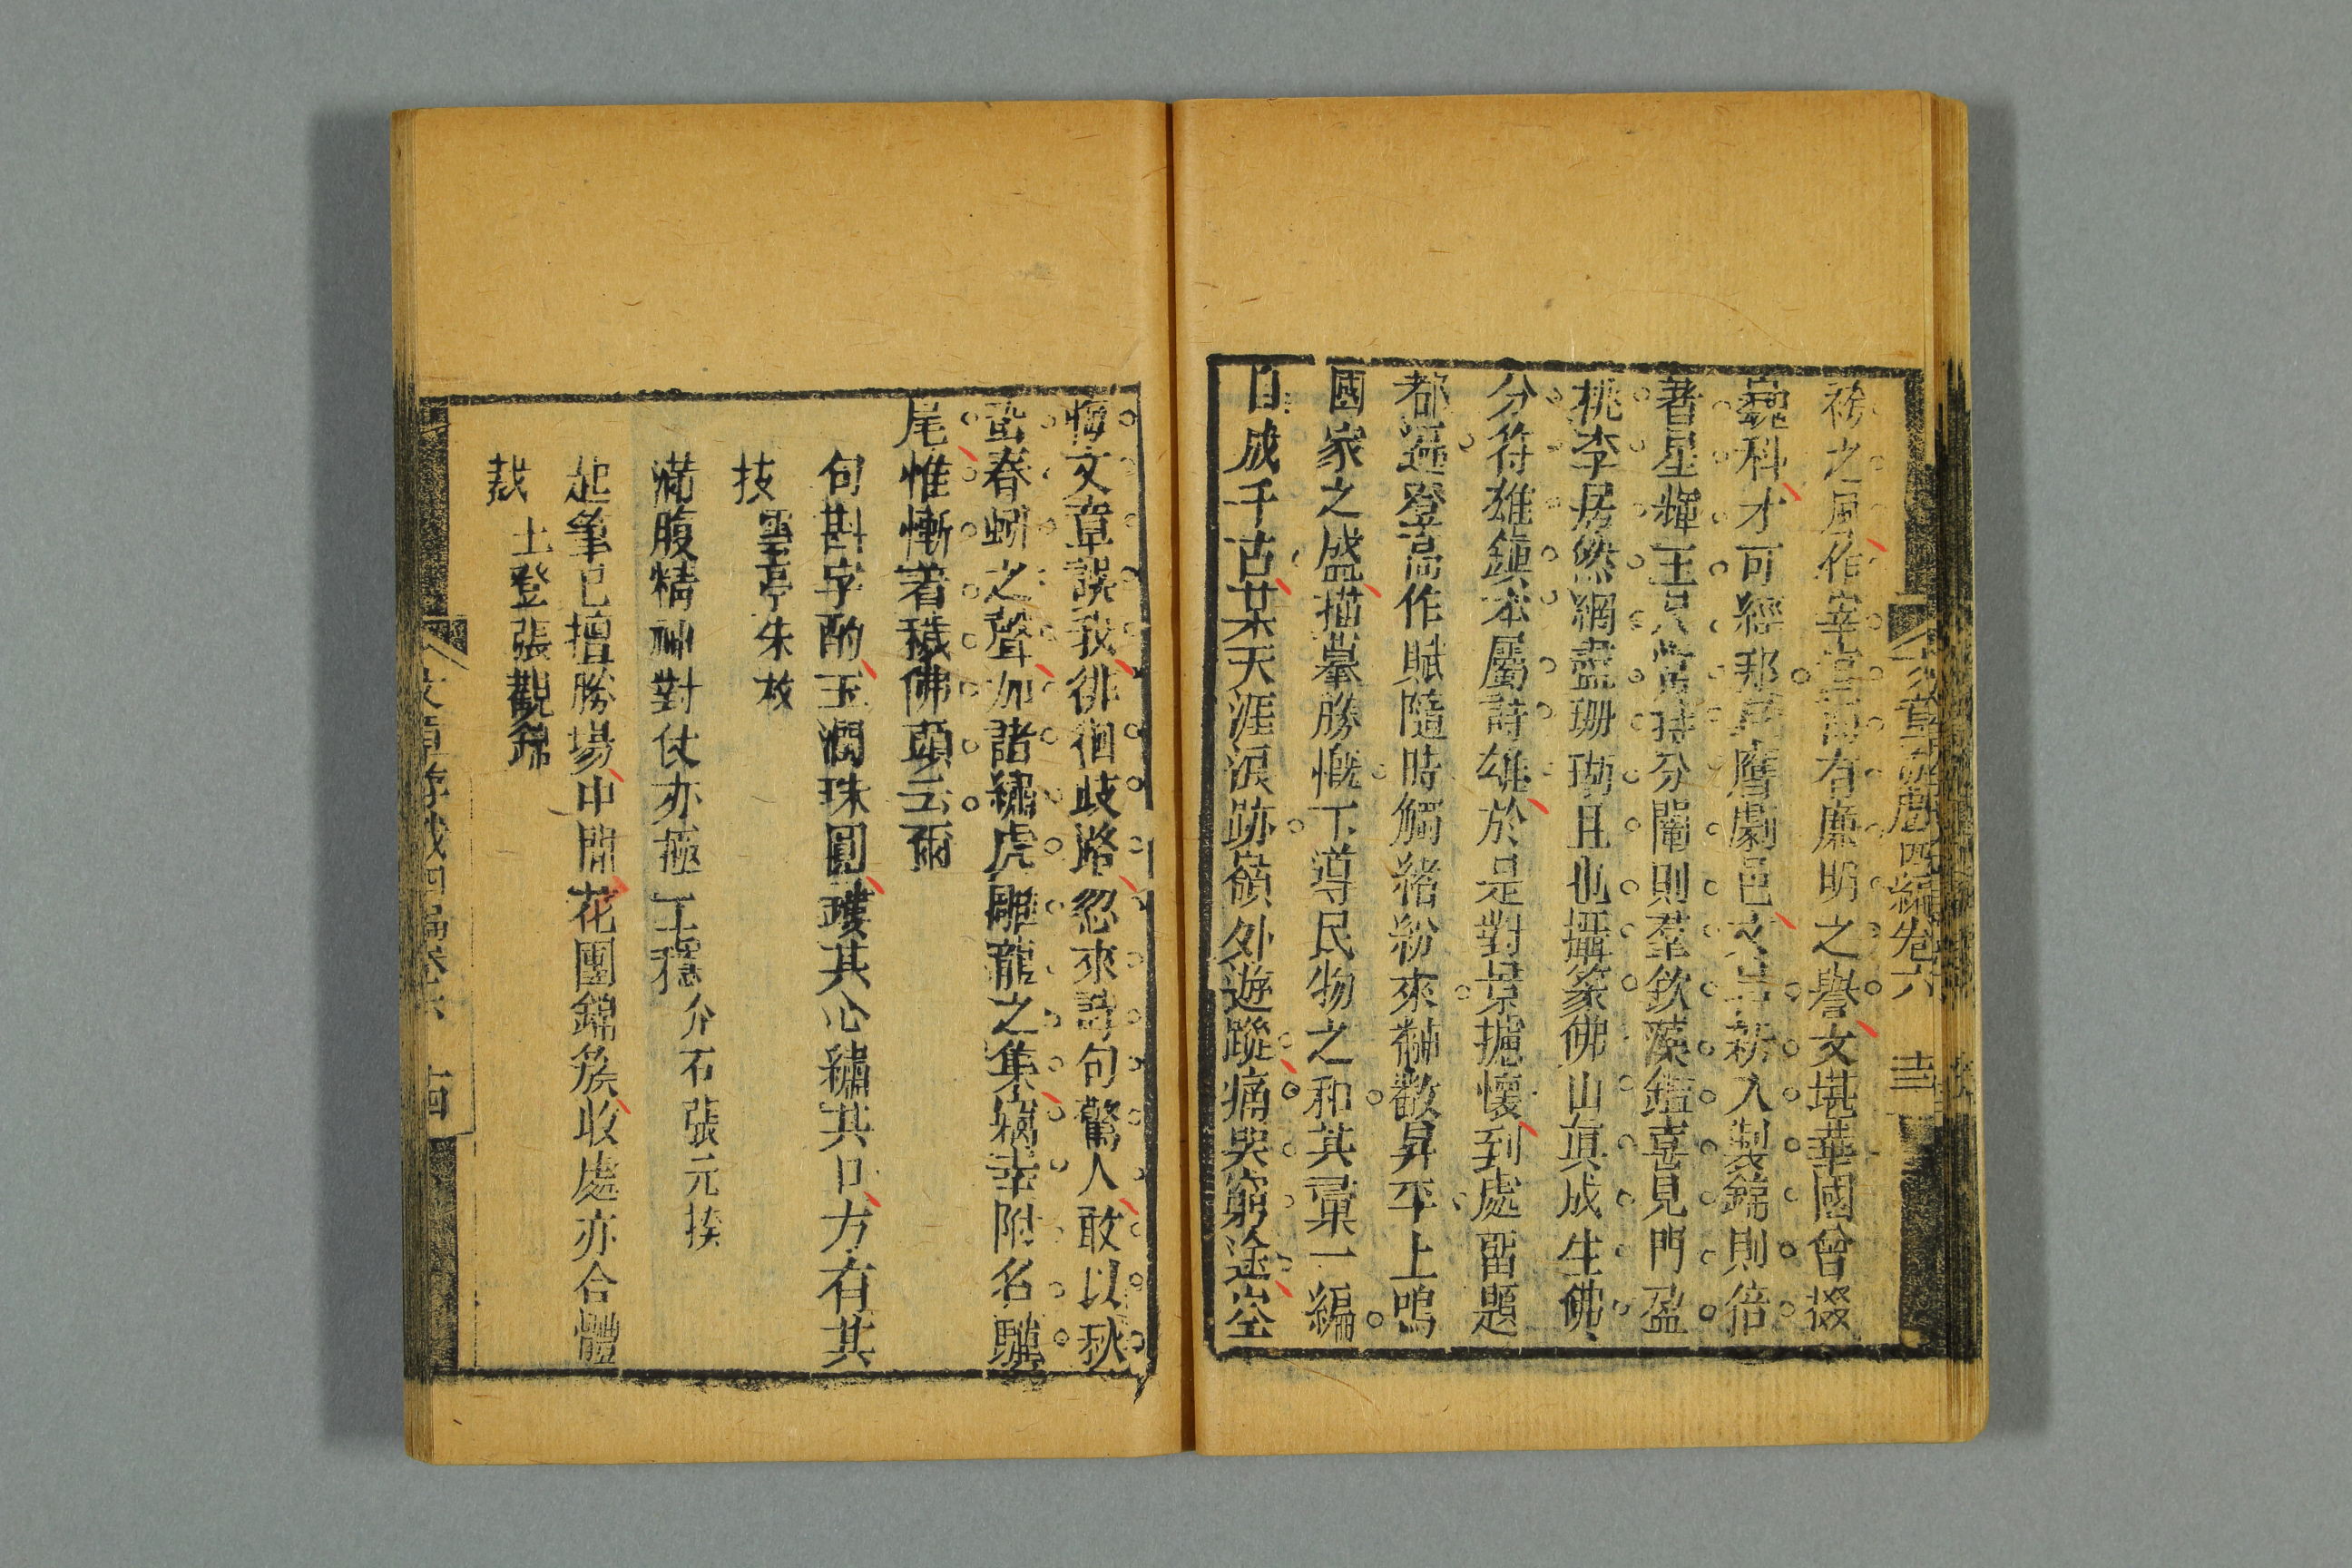 之風作宰言有廉明之譽文堪華國曾掇
巍科才可經邦膺劇邑文新入製錦則倍
著星輝玉尺持分闈則羣欽藻鑑喜見門盈
桃李居然網盡珊瑚且也攝篆佛山眞成生佛
分符雄鎭本屬詩雄於是對景攄懷到處留題
都遍登高作賦隨時觸緖紛來黼黻昇平上鳴
國家之盛描摹勝慨下導民物之和其彙一編
自成千古某天涯淚跡嶺外遊蹤痛哭窮途空
悔文章誤我徘徊歧路忽來詩句驚人敢以秋
蛩春蚓之聲加諸繡虎雕龍之集竊幸附名驥
尾惟慚着穢佛頭云爾
句斟字酌玉潤珠圓璞其心繡其口方有其
技 雲亭朱枚
滿腹精神對仗亦極工穩 介石張元揆
起筆已擅勝場中間花團錦簇收處亦合體
裁 土登張觀錦
文章游戲四編卷六 十三
文章游戲四編卷六 十四